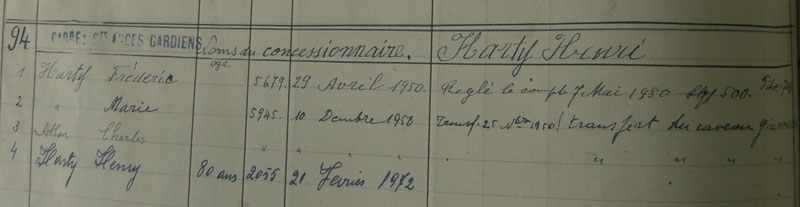 94 CARRÉ: STS ANGES GARDIENS Noms du concessionnaire. Harty Henri
age
1 Harty Fréderic 5679 29 Avril 1950. Reglé le compte 7 Mai 1950 500.
2 " Marie 5945 10 Dcembre 1950 Transf. 25 Nbre 1950 (transfert du caveau
3 Charles " " " " " " "
4 Harty Henry 80 ans 2055 21 Fevrier 1972